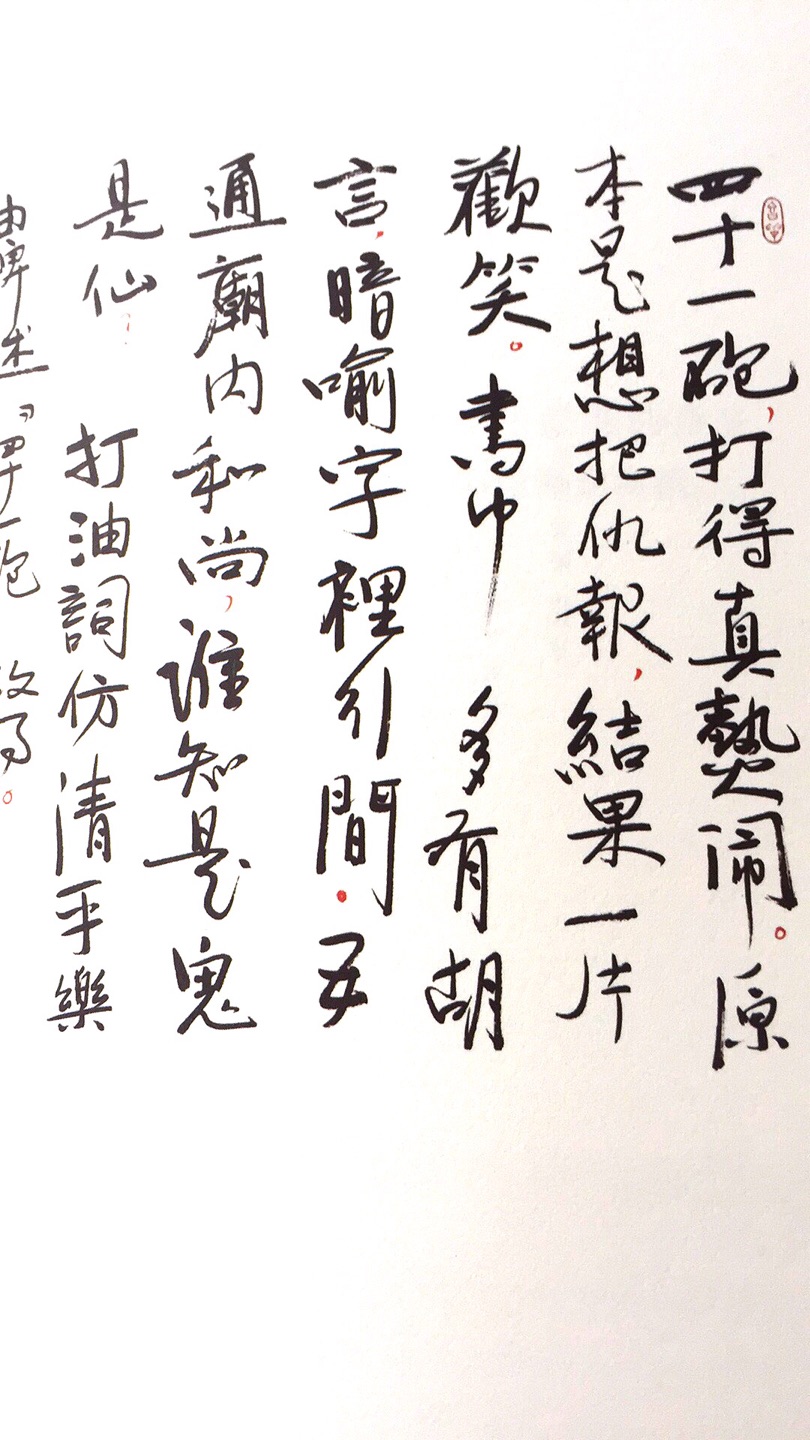 四十一砲，打得真熱闹。原
本是想把仇報，結果一片
歡笑。書中 多有胡
言，暗喻字裡引間。五
通廟内和尚，誰知是鬼
是仙。
打油詞仿清平樂